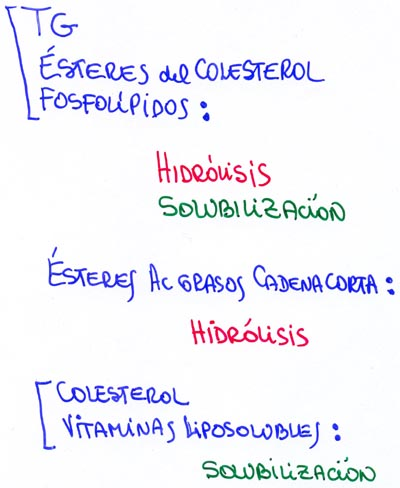 TG
ÉSTERES del COLESTEROL
FOSFOLÍPIDOS:
HIDRÓLISIS
SOLUBILIZACIÓN
ÉSTERES AC GRASOS CADENA CORTA:
HIDRÓLISIS
COLESTEROL
VITAMINAS LIPOSOLUBLES:
SOLUBILIZACIÓN